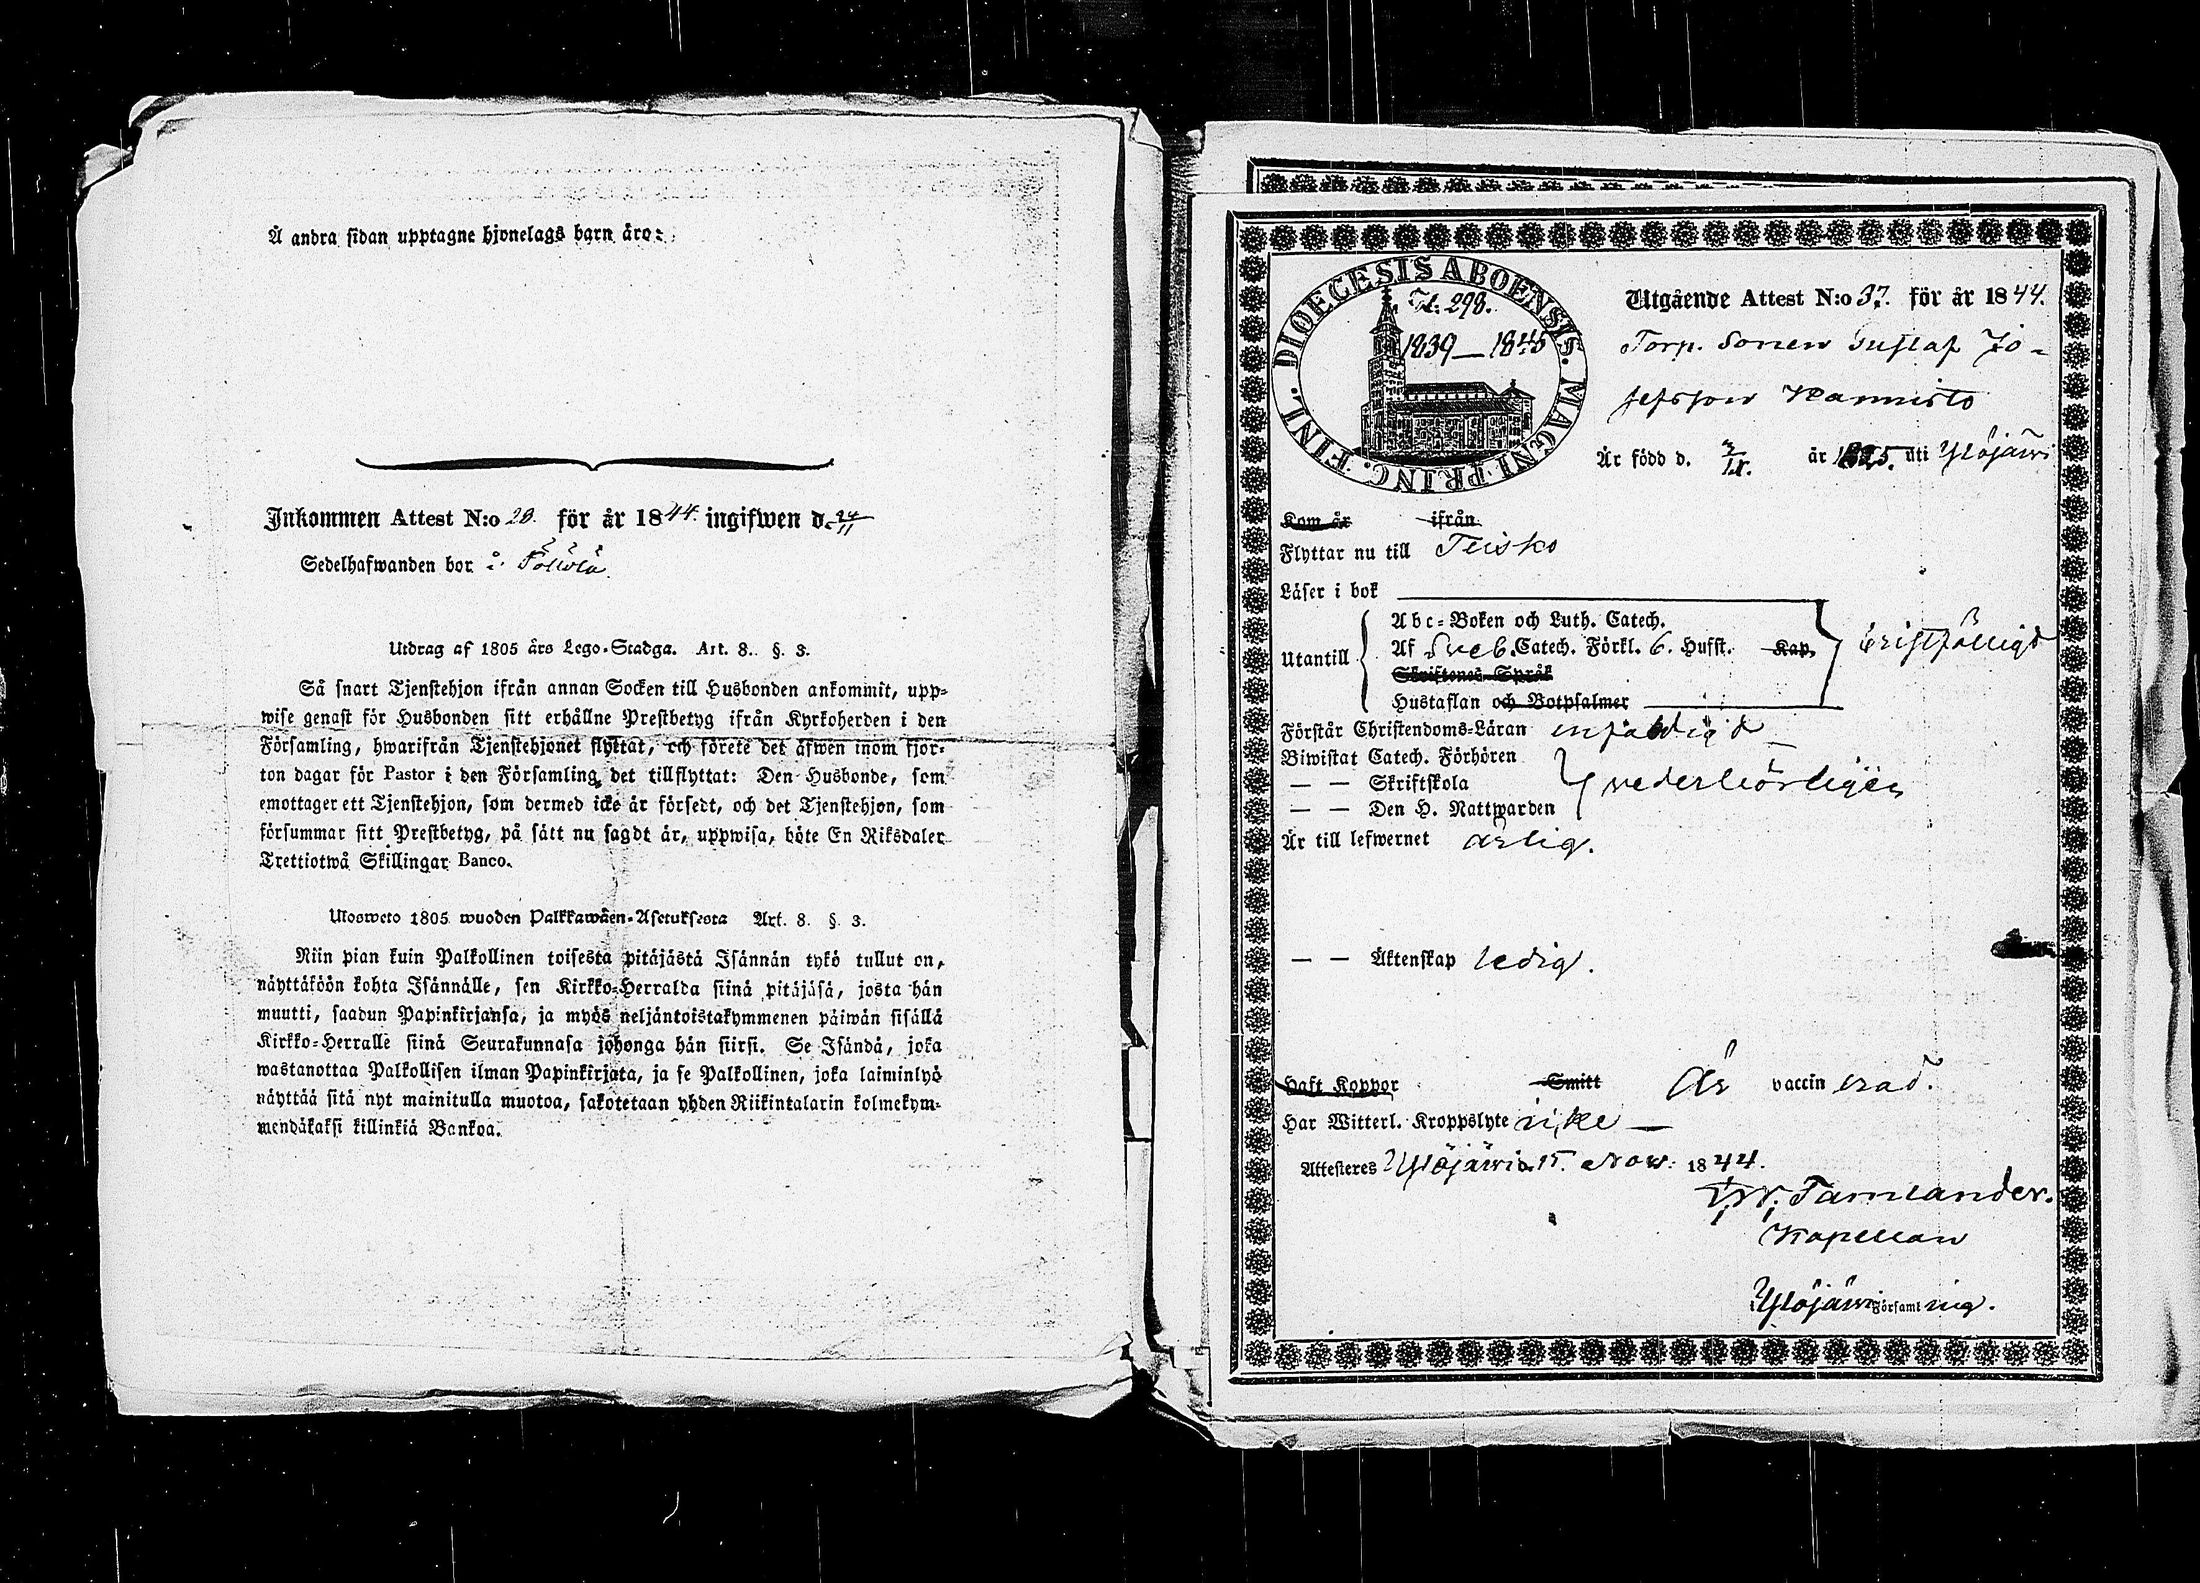 Å andra sidan upptagne hjonelags barn äro:
Inkommen Attest N:o 28. för år 1844. ingifwen d. 24/11
Sedelhafwanden bor i
Utdrag af 1805 års Lego-Stadga. Art. 8. §. 3.
Så snart Tjenstehjon ifrån annan Socken till Husbonden ankommit, upp-
wise genast för Husbonden sitt erhållne Prestbetyg ifrån Kyrkoherden i den
Församling, hwarifrån Tjenstehjonet flyttat, och förete det äfwen inom fjor-
ton dagar för Pastor i den Församling det tillflyttat: Den Husbonde, som
emottager ett Tjenstehjon, som dermed icke är försedt, och det Tjenstehjon, som
försummar sitt Prestbetyg, på sätt nu sagdt är, uppwisa, böte En Riksdaler
Trettiotwå Skillingar Banco.
Ulosweto 1805 wuoden Palkkawäen-Asetuksesta Art. 8. §. 3.
Niin pian kuin Palkollinen toisesta pitäjästä Isännän tykö tullut on,
näyttäköön kohta Isännälle, sen Kirkko-Herralda siinä pitäjäsä, josta hän
muutti, saadun Papinkirjansa, ja myös neljäntoistakymmenen päiwän sisällä
Kirkko-Herralle siinä Seurakunnasa johonga hän siirsi. Se Isändä, joka
wastanottaa Palkollisen ilman Papinkirjata, ja se Palkollinen, joka laiminlyö
näyttää sitä nyt mainitulla muotoa, sakotetaan yhden Riikintalarin kolmekym-
mendäkaksi killinkiä Bankoa.
DIOECESIS ABOENSIS. MAGNI PRINC. FINL.
298.
1839—1845
Utgående Attest N:o 37. för år 1844.
Torp. Sonen Gustaf Jo-
sefsson Hannisto
Är född d. år 1825. uti Ylöjärvi
Kom år ifrån
Flyttar nu till Teisko
Läser i bok
Utantill
Abc-Boken och Luth. Catech.
Af Sveb. Catech. Förkl. 6. Hufst. Kap.
Skriftenes Språk
Hustaflan och Botpsalmer
bristfälligt
Förstår Christendoms-Läran enfaldigt
Biwistat Catech. Förhören
— — Skriftskola
— — Den H. Nattwarden
vederbörligen
Är till lefwernet ärlig.
— — Äktenskap ledig.
Haft Koppor Smitt Är vaccinerad.
Har Witterl. Kroppslyte icke —
Attesteres Ylöjärvi d. 15. Nov: 1844.
Tamlander.
Kapellan
i Ylöjärvi Församling.